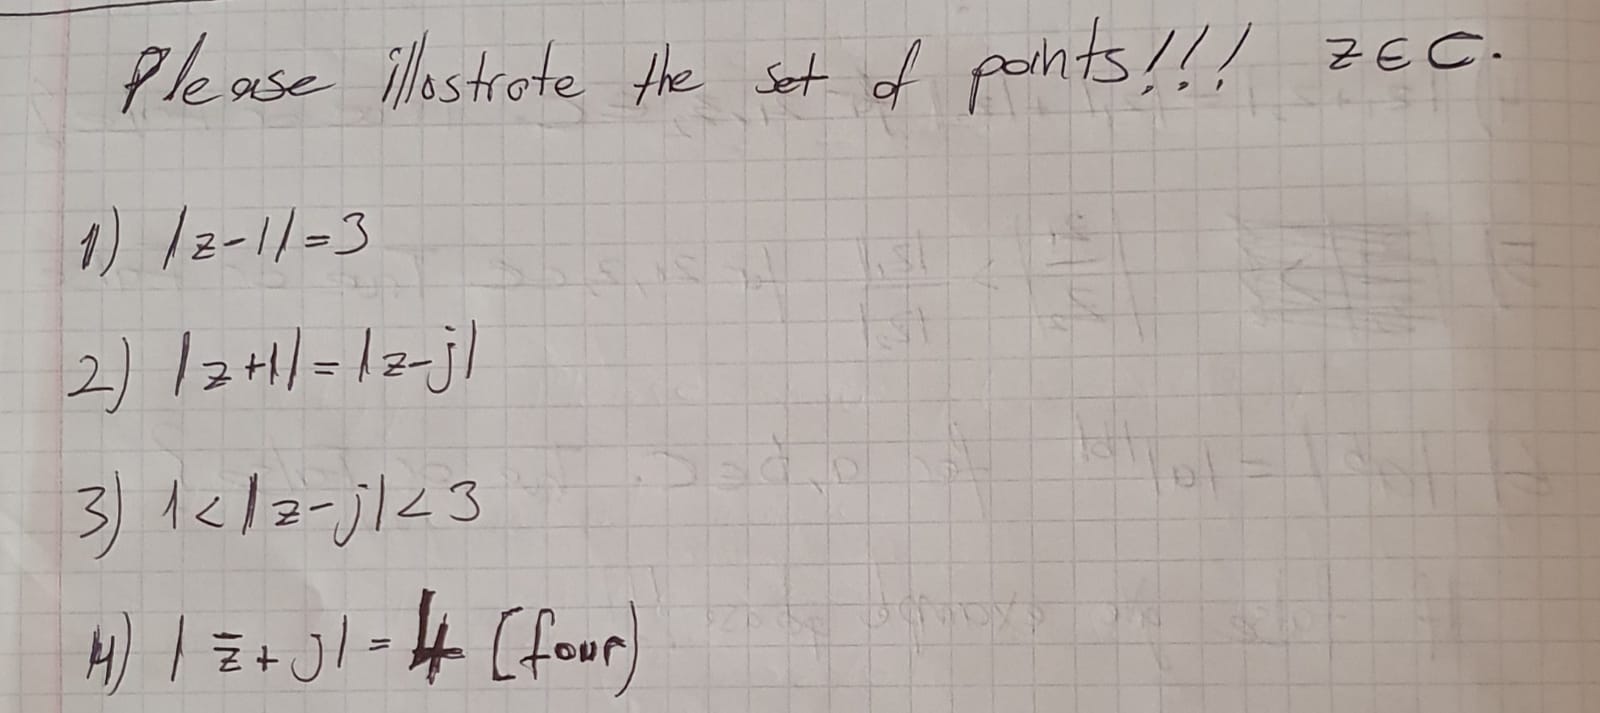 Please illustrate the set of points!!! z∈C.
1) |z-1|=3
2) |z+1|=|z-j|
3) 1<|z-j|<3
4) |z̄+j|=4 (four)